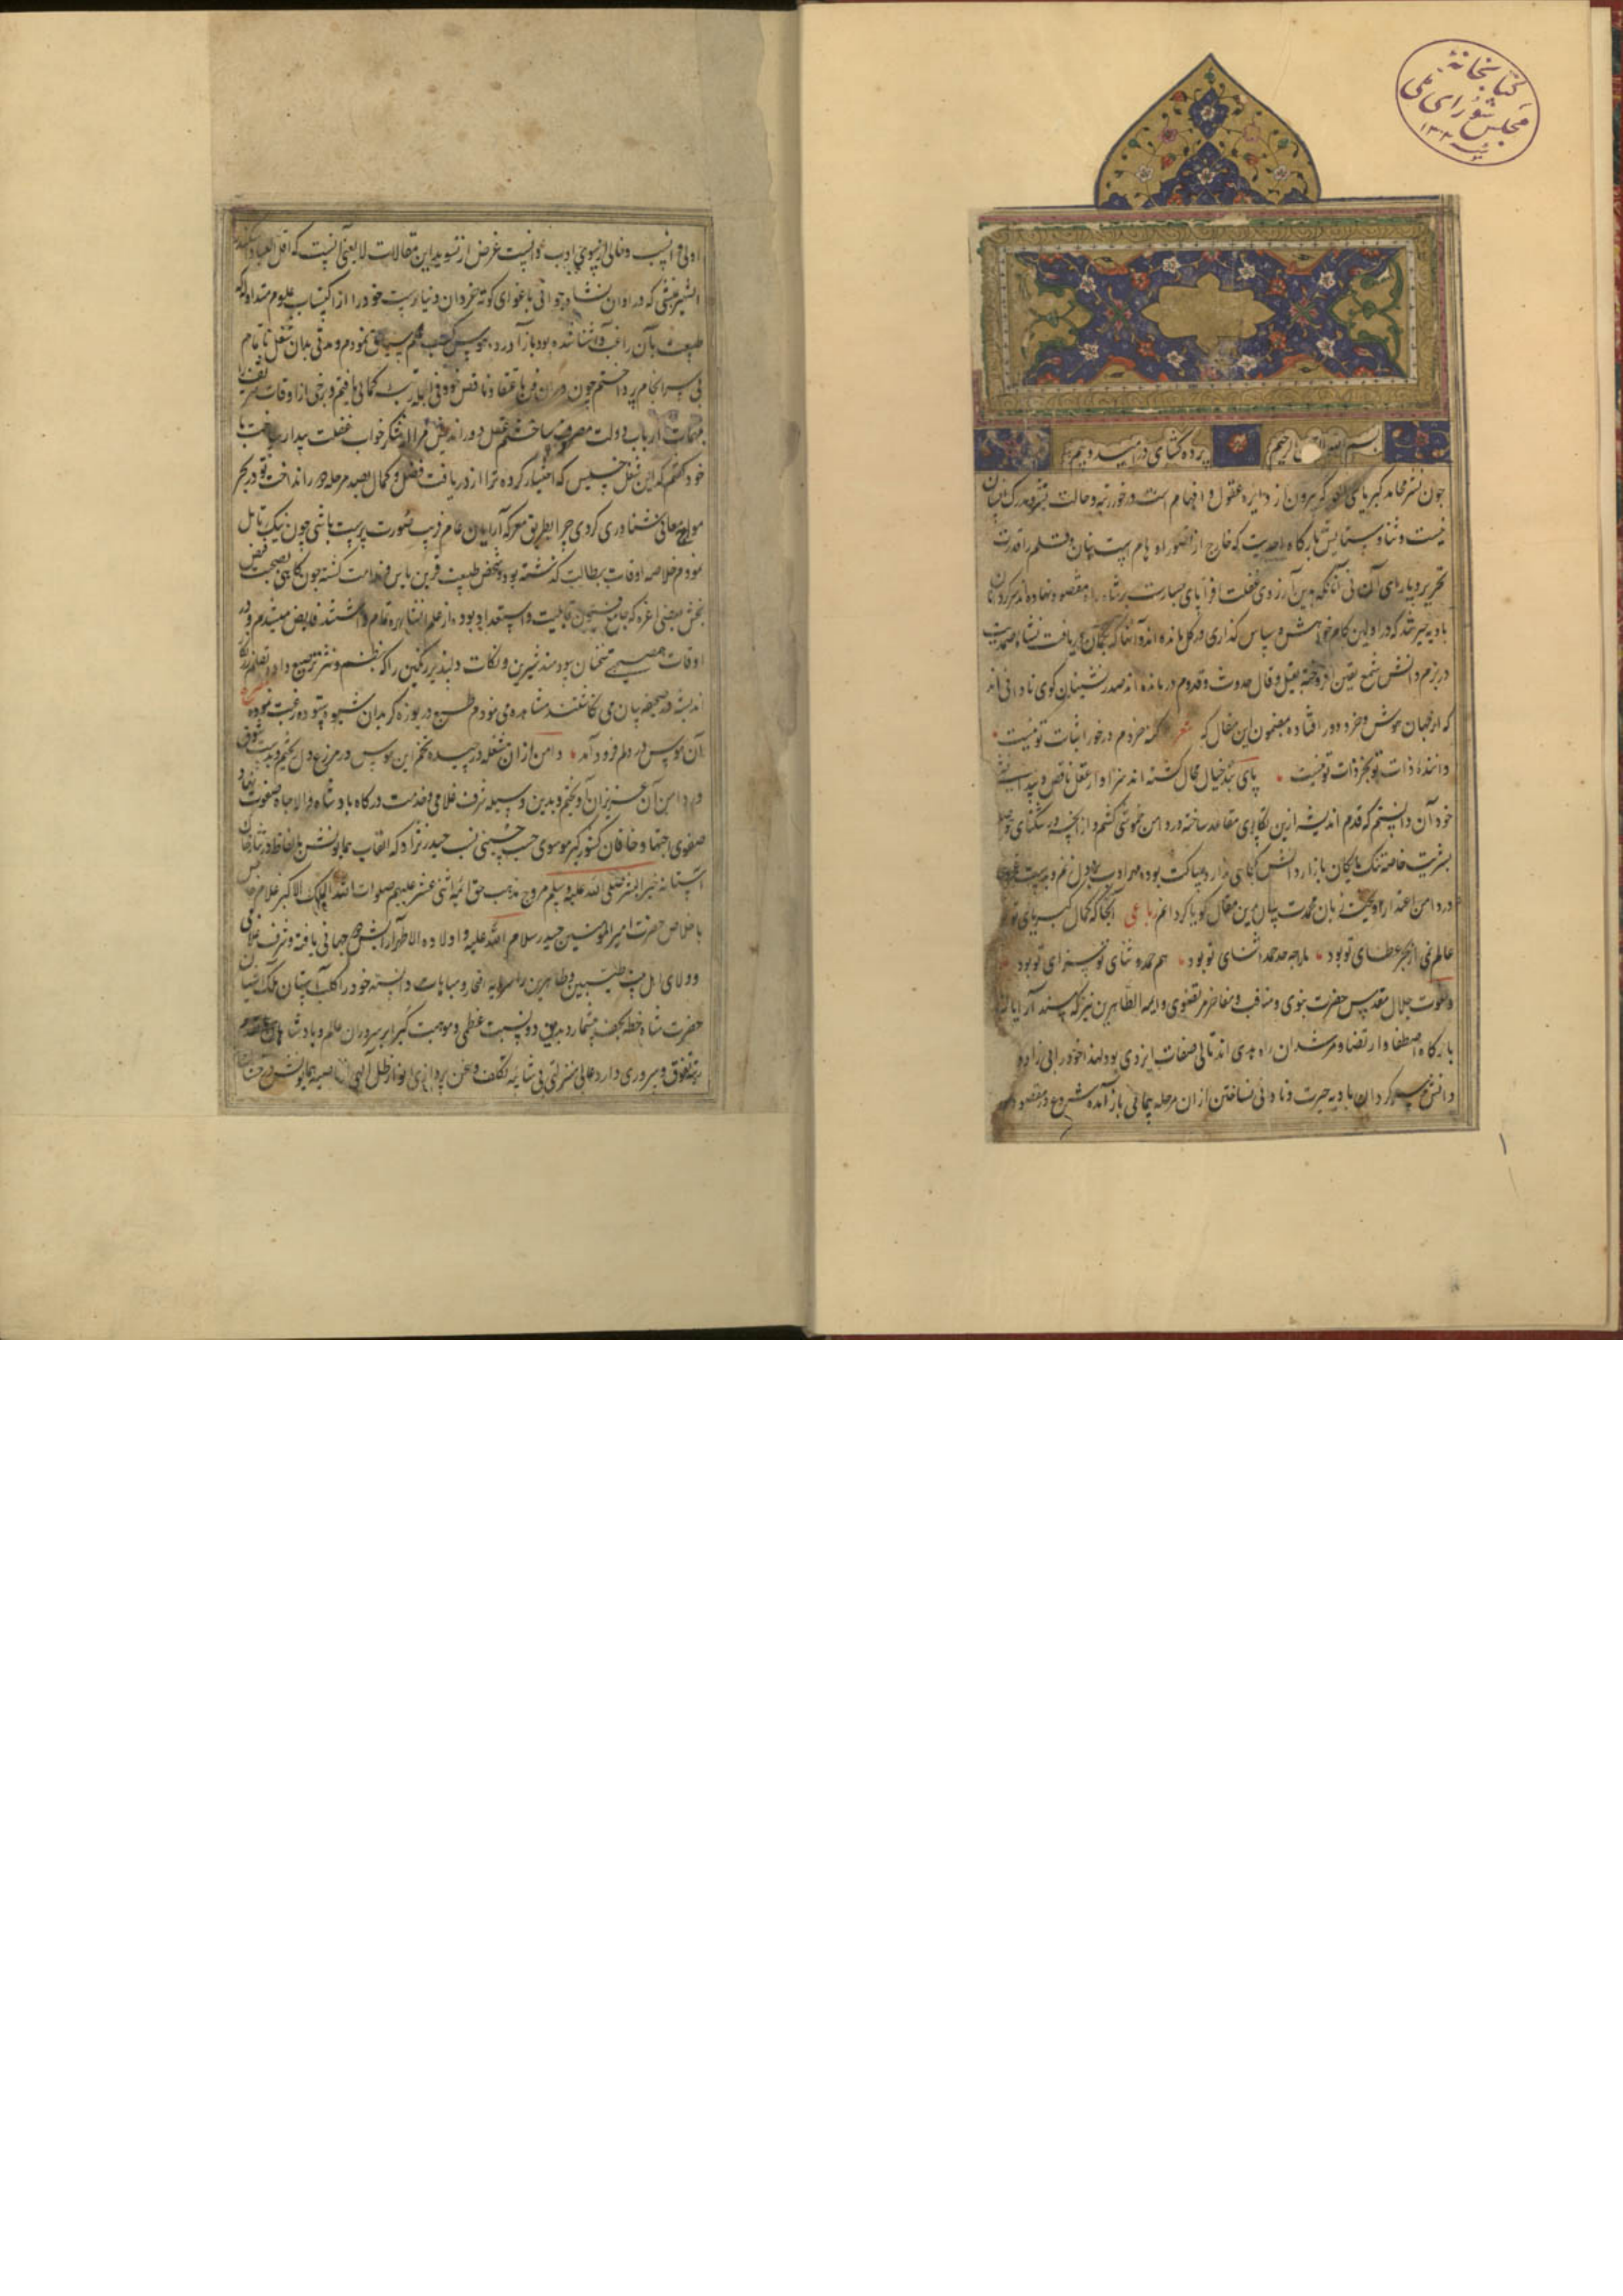 کتابخانهٔ
مجلس شورای ملی
بسم الله الرحیم پرده گشای در امید و بیم
چون نشر محامد کبریای از دایره عقول و افهام است و در خور رتبه و حالت
نیست و ثنا و ستایش بارگاه احدیت که خارج از تصور اوهام است بنان و قلم را قدرت
تحریر و یارای آن نی آنانکه بدین آرزوی غفلت افزا پای جسارت بر شاه راه مقصود نهاده اند
بادیه که در اولین کام خواهش و سپاس گذاری در گل مانده اند و آنها که دریافت
در بزم دانش شمع یقین افروخته بقیل و قال حدوث و قدوم در مانده اند صدر نشینان کوی نادانی اند
که از جهان هوش و خرد دور افتاده مضمون این مقال که شعر کنه خردم درخور اثبات تو نیست
داننده ذات تو بجز ذات تو نیست پای بند خیال محال گشته اند سزاوار عقل ناقص
خود آن دانستم که قدم اندیشه ازین مقاعد ساخته در دامن خموشی کشم و از
بشریت خاصه تنک مایکان بازار دانش بوده
در دامن اعتذار آویخت زبان بدین مقال گویا کرد انم رباعی آنجا که کمال کبریای تو بود
عالم نمی از بحر عطای تو بود ما را چه حد حمد و ثنای تو بود هم حمد و ثنای تو سزای تو بود
و نعوت جلال مقدس حضرت نبوی و مناقب و مفاخر مرتضوی و ایمه الطاهرین نیز که مسند آرایان
بارگاه اصطفا و ارتضا و مرشدان راه هدی اند تالی صفات ایزدی بود لهذا خود را بی زاد
دانش سرگردان بادیه حیرت و نادانی نساختن از آن مرحله پیمائی باز آمده شروع در مقصود
۱
اولی و انسب و خالی از ادب دانست غرض از تسوید این مقالات لایعنی آنست که اقل العباد
الشهیر بمنشی که در اوان نشاء جوانی باغوای کوته خردان دنیا پرست خود را از اکتساب علوم متداوله که
طبیعت بآن راغب و آشنا شده بود باز آورده بهوس کسب علم سیاق نمودم و مدتی بدان شغل ناتمام
بی سرانجام پرداختم چون در آن فن باعتقاد ناقص خود فی الجمله رتبه کمالی یافتم و برخی از اوقات
بمهمات ارباب دولت مصروف ساختم عقل دور اندیش مرا از شکر خواب غفلت بیدار ساخت با
خود گفتم که این شغل خسیس که اختیار کرده ترا از دریافت فضل و کمال بصد مرحله دور انداخت تو در بحر
مواج معانی شناوری کردی چرا بطریق معرکه آرایان عام فریب صورت پرست باشی چون نیک تامل
نمودم خلاصه اوقات ببطالت گذشته بود و شخص طبیعت قرین یاس و ندامت گشته چون گاهی بصحبت فیض
بخش بعضی اعزه که جامع فنون قابلیت و استعداد بوده از علم انشا بهره تمام داشتند فایض میشدم و در
اوقات سخنان سودمند شیرین و نکات دلپذیر رنگین را که بنظم و نثر ترصیع داده
اندیشه در صحیفه بیان می نگاشتند مشاهده می نمودم طبع دریوزه گر بدان شیوه ستوده رغبت نموده
آن هوس در دلم فرود آمد دامن از آن مشغله درچیده تخم این هوس در مزرع دل بکشتم و بدست شوق
در دامن آن عزیزان آویختم و بدین وسیله شرف غلامی و خدمت درگاه پادشاه والاجاه صفوت نژاد
صفوی اجتهاد خاقان کشورگیر موسوی حسب حسینی نسب حیدر نژاد که القاب همایونش بالفاظ
آستانه خیر البشر صلی الله علیه و سلم مروج مذهب حق ائمه اثنی عشر علیهم صلوات الله الملک الاکبر غلام
با خلاص حضرت امیر المومنین حیدر سلام الله علیه و اولاده الاطهار آرایش جهانی یافته و شرف غلامی
و ولای اهل بیت طیبین و طاهرین را سرمایه افتخار و مباهات دانسته خود را کلب آستان ملک آشیان
حضرت شاه خطه نجف میشمارد و بدین دو نسبت عظمی و موهبت کبرا بر سروران عالم و پادشاهان
رتبه تفوق و سروری دارد عالی منزلتی بی شائبه تکلف و سخن پردازی انوار ظل الهی از ناصیه همایونش درخشان